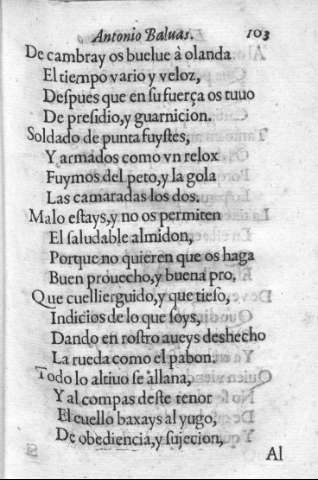 Antonio Baluas. 103
De cambray os buelue à olanda
El tiempo vario y veloz,
Despues que en su fuerça os tuuo
De presidio, y guarnicion.
Soldado de punta fuystes,
Y armados como vn relox
Fuymos del peto, y la gola
Las camaradas los dos.
Malo estays, y no os permiten
El saludable almidon,
Porque no quieren que os haga
Buen prouecho, y buena pro.
Que cuellierguido, y que tieso,
Indicios de lo que soys,
Dando en rostro aueys deshecho
La rueda como el pabon.
Todo lo altiuo se allana,
Y al compas deste tenor
El cuello baxays al yugo,
De obediencia, y sujecion,
Al